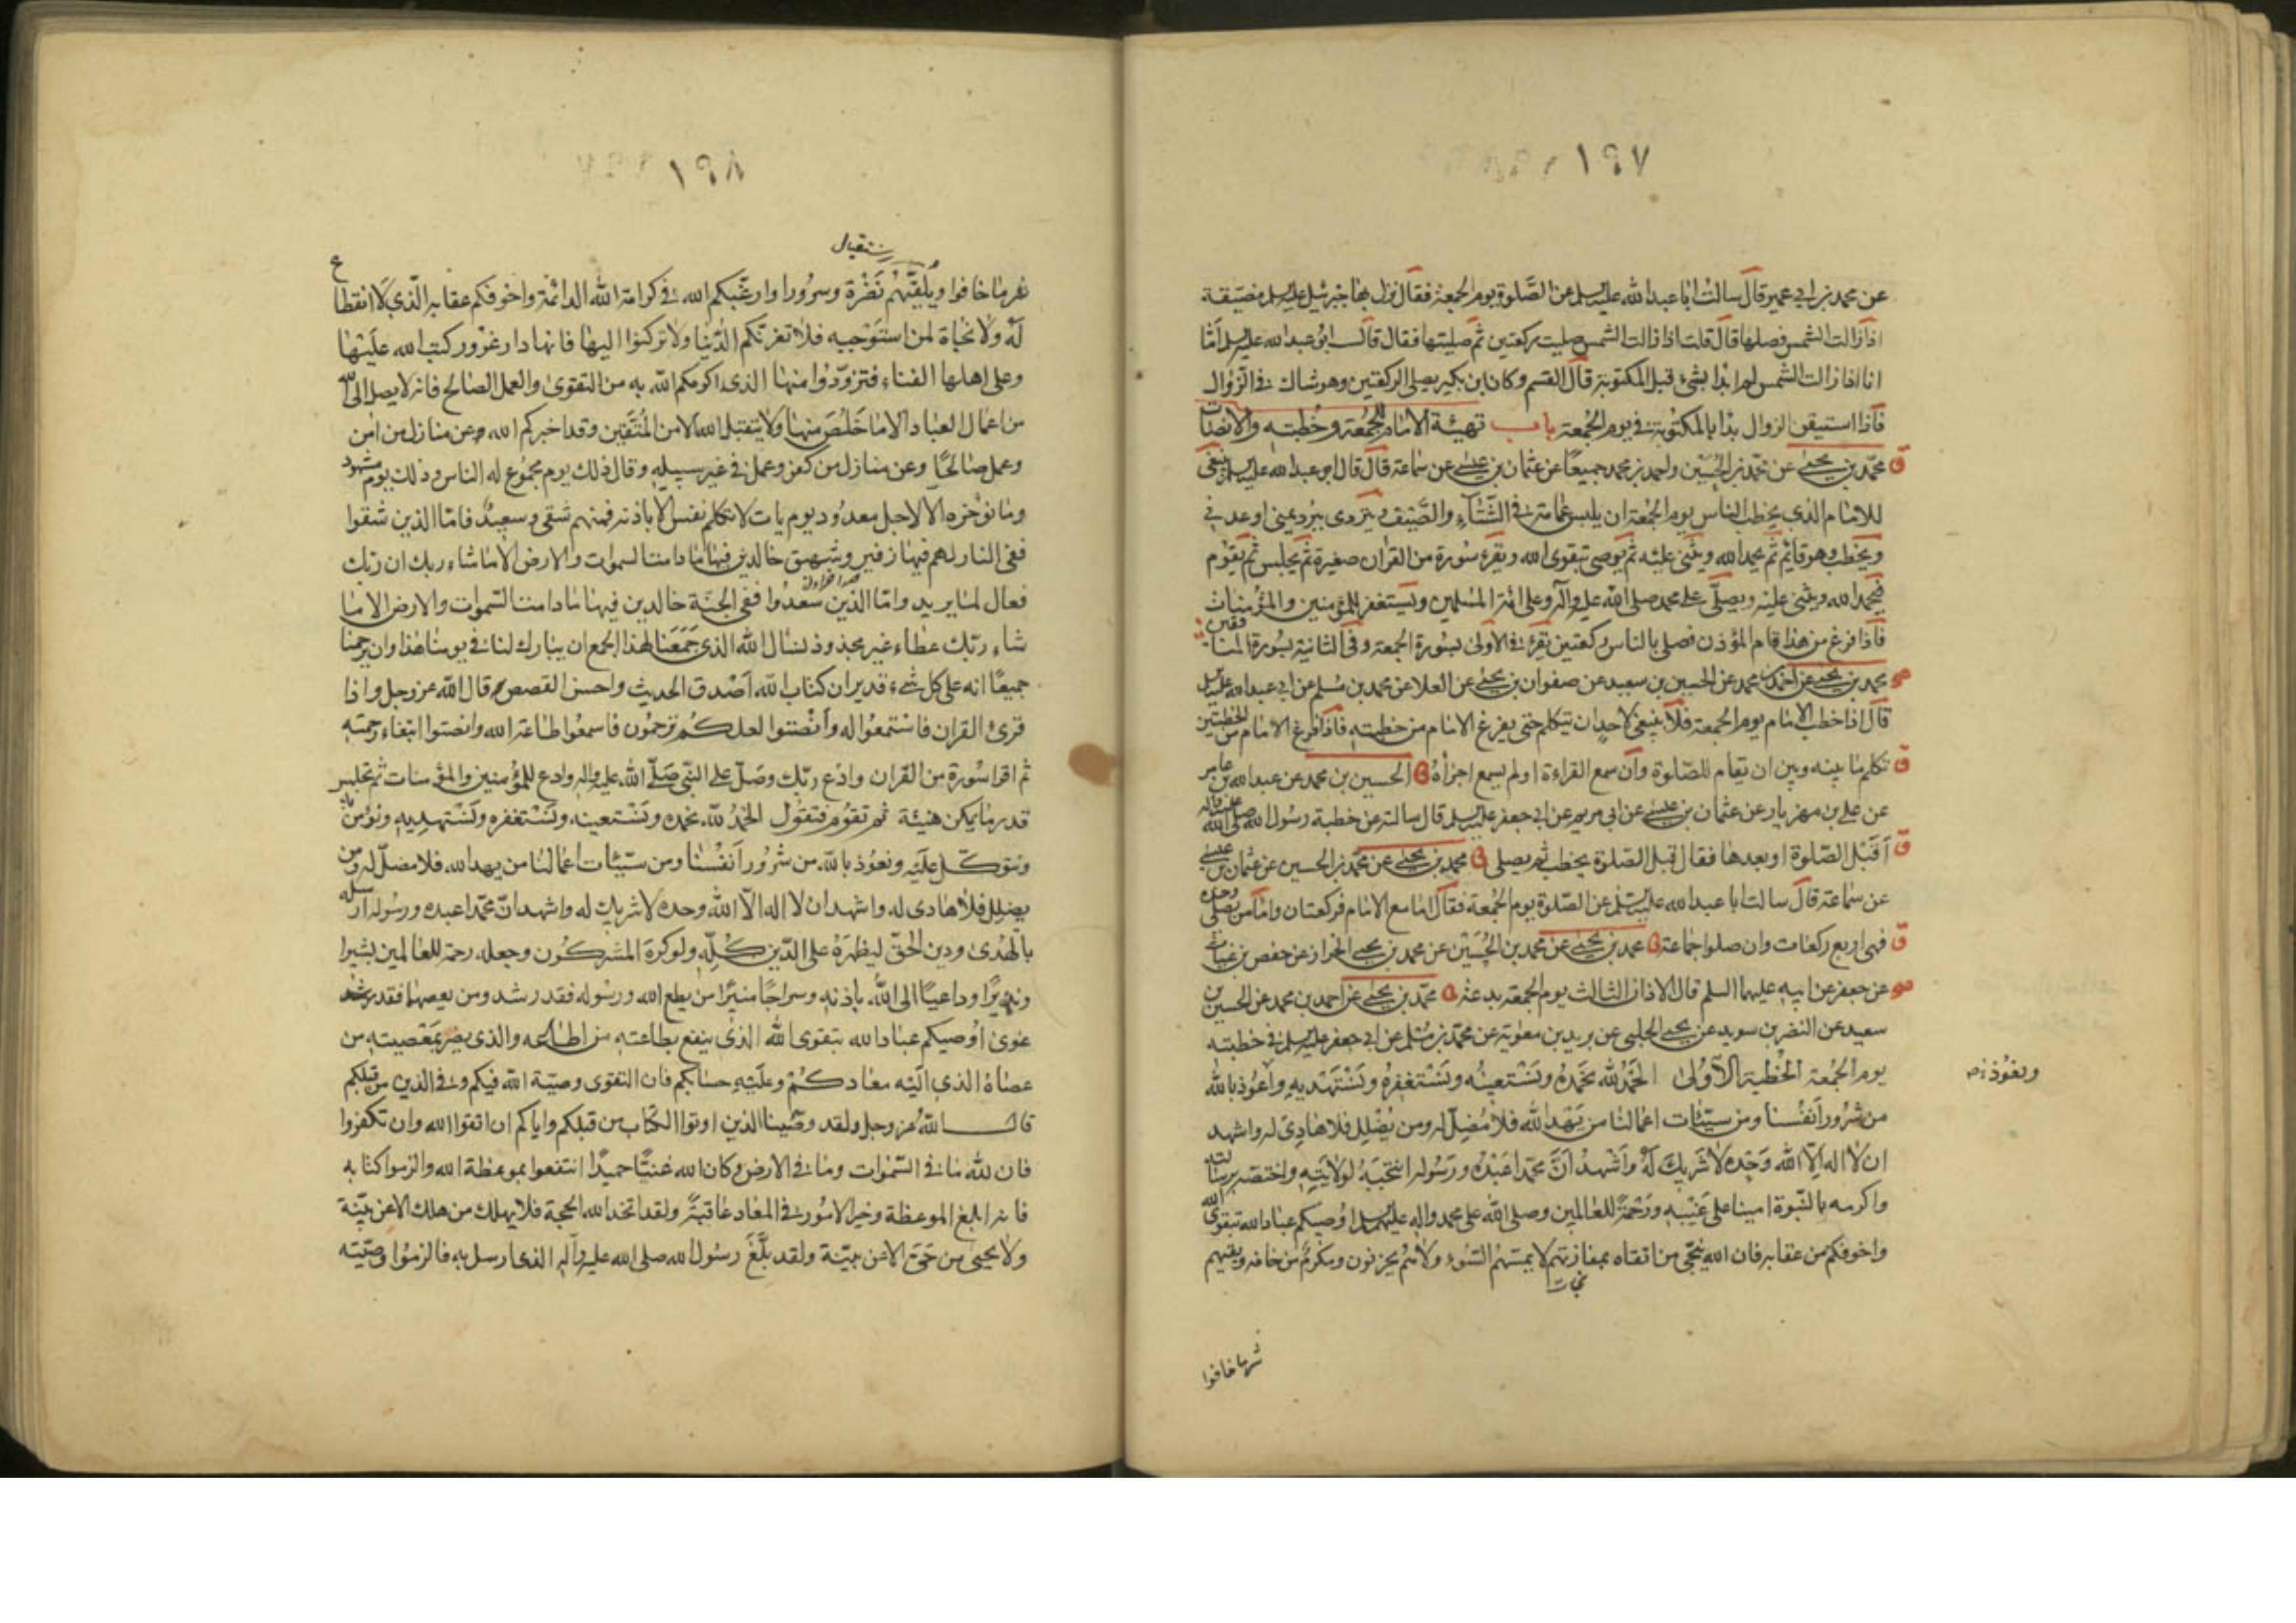 ١٩٧
عن محمد بن ابي عمير قال سالت ابا عبد الله عليه السلم عن الصلوة يوم الجمعة فقال نزل بها جبرئيل عليه السلم مضيقة
اذا زالت الشمس فصلها قال قلت اذا زالت الشمس صليت ركعتين ثم صليتها فقال قال ابو عبد الله عليه السلم امّا
انا اذا زالت الشمس لم ابدا بشيء قبل المكتوبة قال القسم وكان ابن بكير يصلي الركعتين وهو شاك في الزوال
فاذا استيقن الزوال بدا بالمكتوبة في يوم الجمعة باب تهيئة الامام للجمعة وخطبته والانصات
ق محمد بن يحيى عن محمد بن الحسين واحمد بن محمد جميعًا عن عثمان بن عيسى عن سماعة قال قال ابو عبد الله عليه السلم ينبغي
للامام الذي يخطب الناس يوم الجمعة ان يلبس عمامة في الشتاء والصيف ويتردى ببرد يمنى او عدني
ويخطب وهو قائم ثم يحمد الله ويثنى عليه ثم يوصى بتقوى الله ويقرء سورة من القران صغيرة ثم يجلس ثم يقوم
فيحمد الله ويثنى عليه ويصلى على محمد صلى الله عليه واله وعلى ائمة المسلمين ويستغفر للمؤمنين والمؤمنات
فاذا فرغ من هذا قام المؤذن فصلى بالناس ركعتين يقرء في الاولى بسورة الجمعة وفي الثانية بسورة المنافقين
محمد بن يحيى عن احمد بن محمد عن الحسين بن سعيد عن صفوان بن يحيى عن العلا عن محمد بن مسلم عن ابي عبد الله عليه السلم
قال اذا خطب الامام يوم الجمعة فلا ينبغي لاحد ان يتكلم حتى يفرغ الامام من خطبته فاذا فرغ الامام من الخطبتين
ق تكلم ما بينه وبين ان يقام للصلوة وان سمع القراءة او لم يسمع اجزأه الحسين بن محمد عن عبد الله بن عامر
عن علي بن مهزيار عن عثمان بن عيسى عن ابي مريم عن ابي جعفر عليه السلم قال سالته عن خطبة رسول الله صلى الله عليه واله
ق أقبل الصلوة او بعدها فقال قبل الصلوة يخطب ثم يصلى محمد بن يحيى عن محمد بن الحسين عن عثمان بن عيسى
عن سماعة قال سالت ابا عبد الله عليه السلم عن الصلوة يوم الجمعة فقال اما مع الامام فركعتان واما من يصلى وحده
ق فهى اربع ركعات وان صلوا جماعة محمد بن يحيى عن محمد بن الحسين عن محمد بن يحيى الخزاز عن حفص بن غياث
عن جعفر عن ابيه عليهما السلم قال الاذان الثالث يوم الجمعة بدعة محمد بن يحيى عن احمد بن محمد عن الحسين بن
سعيد عن النضر بن سويد عن يحيى الحلبى عن بريد بن معوية عن محمد بن مسلم عن ابي جعفر عليه السلم في خطبته
يوم الجمعة الخطبة الاولى الحمد لله نحمده ونستعينه ونستغفره ونستهديه واعوذ بالله
ونعوذ
من شرور انفسنا ومن سيئات اعمالنا من يهد الله فلا مضل له ومن يضلل فلا هادى له واشهد
ان لا اله الا الله وحده لا شريك له واشهد ان محمدا عبده ورسوله انتجبه لولايته واختصه برسالته
واكرمه بالنبوة امينا على غيبه ورحمة للعالمين وصلى الله على محمد واله عليهم السلم اوصيكم عباد الله بتقوى الله
واخوفكم من عقابه فان الله ينجي من اتقاه بمفازتهم لا يمسهم السوء ولا هم يحزنون ومكرم من خافه ويقيهم
نجات
شر ما خافوا
١٩٨
استقبال
شر ما خافوا ويلقيهم نضرة وسرورا وارغبكم الله في كرامة الله الدائمة واخوفكم عقابه الذي لا انقطاع
له ولا نجاة لمن استوجبه فلا تغرنكم الدنيا ولا تركنوا اليها فانها دار غرور كتب الله عليها
وعلى اهلها الفناء فتزودوا منها الذي اكرمكم الله به من التقوى والعمل الصالح فانه لا يصل الى الله
من اعمال العباد الا ما خلص منها ولا يتقبل الله الا من المتقين وقد اخبركم الله عن منازل من امن
وعمل صالحًا وعن منازل من كفر وعمل في غير سبيله وقال ذلك يوم مجموع له الناس وذلك يوم مشهود
وما نؤخره الا لاجل معدود يوم يات لا تكلم نفس الا باذنه فمنهم شقى وسعيد فاما الذين شقوا
ففى النار لهم فيها زفير وشهيق خالدين فيها ما دامت السموات والارض الا ما شاء ربك ان ربك
فعال لما يريد واما الذين سعدوا ففى الجنة خالدين فيها ما دامت السموات والارض الا ما
شاء ربك عطاء غير مجذوذ نسال الله الذي جمعنا لهذا الجمع ان يبارك لنا في يومنا هذا وان يرحمنا
جميعًا انه على كل شيء قدير ان كتاب الله اصدق الحديث واحسن القصص وقال الله عز وجل واذا
قرئ القران فاستمعوا له وانصتوا لعلكم ترحمون فاسمعوا طاعة الله وانصتوا ابتغاء رحمته
ثم اقرا سورة من القران وادع ربك وصل على النبي صلى الله عليه واله وادع للمؤمنين والمؤمنات ثم تجلس
قدر ما يمكن هنيئة ثم تقوم فتقول الحمد لله نحمده ونستعينه ونستغفره ونستهديه ونؤمن به
ونتوكل عليه ونعوذ بالله من شرور انفسنا ومن سيئات اعمالنا من يهد الله فلا مضل له ومن
يضلل فلا هادى له واشهد ان لا اله الا الله وحده لا شريك له واشهد ان محمدا عبده ورسوله ارسله
بالهدى ودين الحق ليظهره على الدين كله ولو كره المشركون وجعله رحمة للعالمين بشيرا
ونذيرًا وداعيًا الى الله باذنه وسراجًا منيرًا من يطع الله ورسوله فقد رشد ومن يعصهما فقد
غوى اوصيكم عباد الله بتقوى الله الذي ينفع بطاعته من اطاعه والذي يضر بمعصيته من
عصاه الذي اليه معادكم وعليه حسابكم فان التقوى وصية الله فيكم وفي الذين من قبلكم
قال الله عز وجل ولقد وصينا الذين اوتوا الكتاب من قبلكم واياكم ان اتقوا الله وان تكفروا
فان لله ما في السموات وما في الارض وكان الله غنيًا حميدًا انتفعوا بموعظة الله والزموا كتابه
فانه ابلغ الموعظة وخير الامور في المعاد عاقبة ولقد اتخذ الله الحجة فلا يهلك من هلك الا عن بينة
ولا يحيى من حى الا عن بينة ولقد بلغ رسول الله صلى الله عليه واله الذي ارسل به فالزموا وصيته